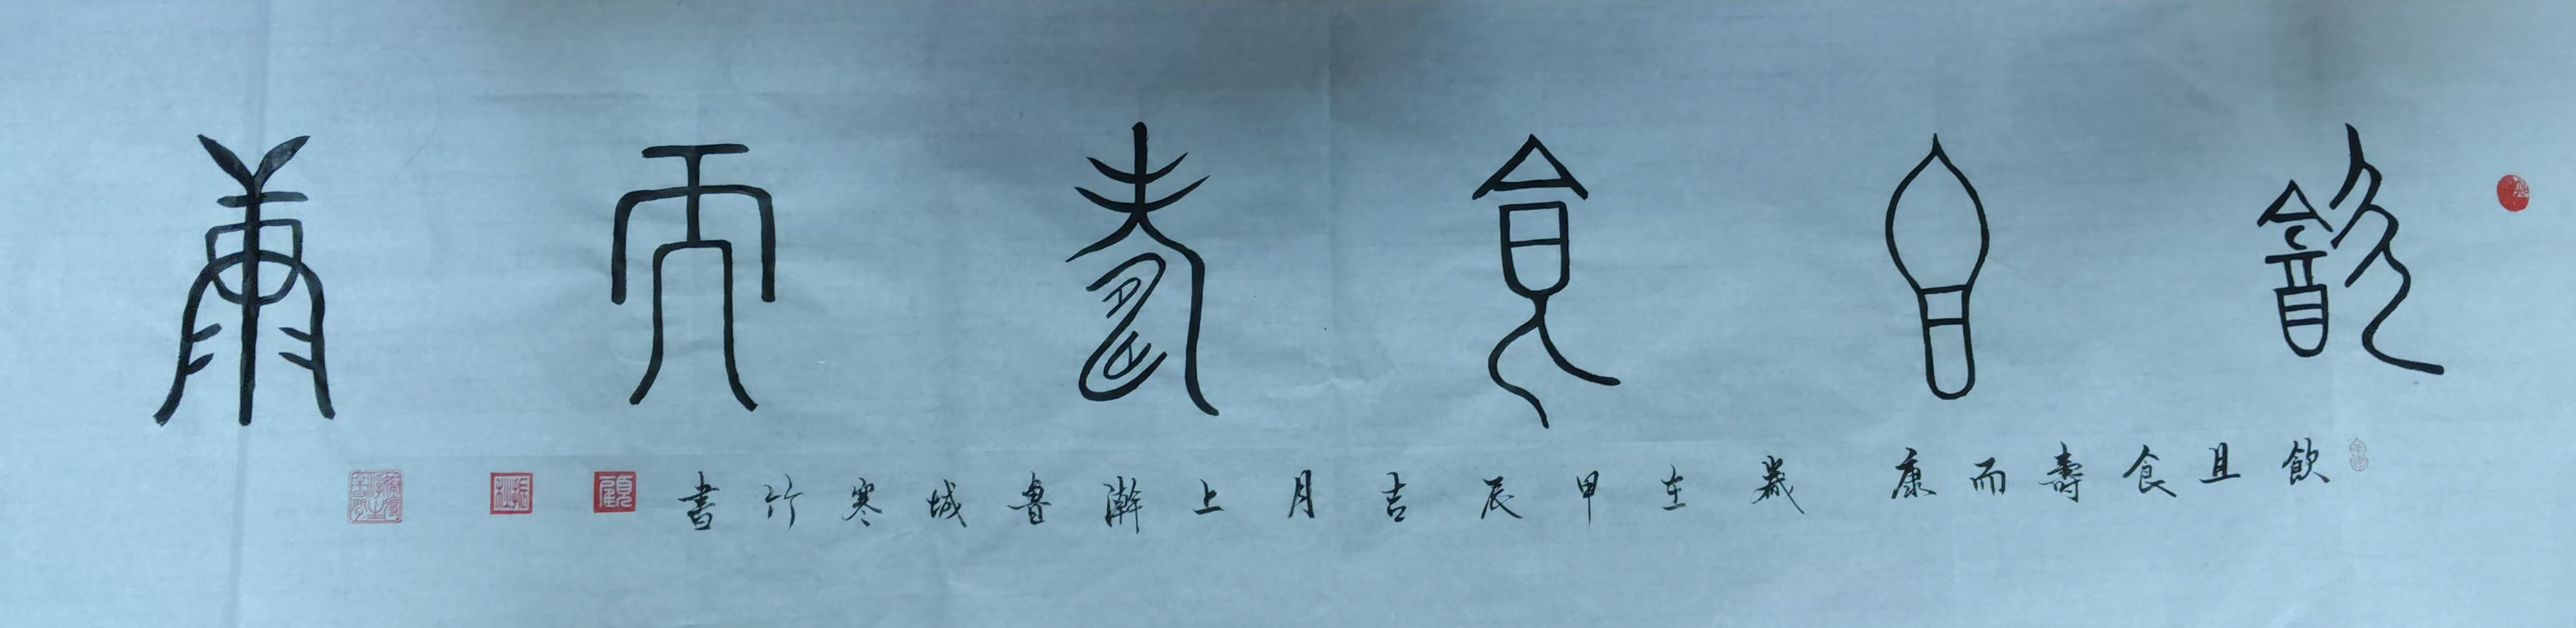 飲且食壽而康
飲且食壽而康 歲在甲辰吉月上澣魯城寒竹書
顧
振